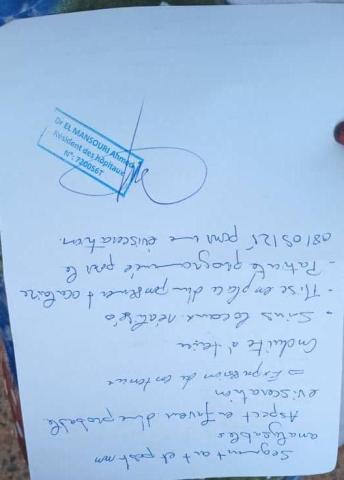 Segment ant et post non
analysables
Aspect en faveur d'une probable
eviscération
⇒ Expression du contenu
Conduite à tenir
- Soins locaux réalisés
- Mise en place d'un pansement oculaire
- Patiente programmée pour le
08/05/25 pour une éviscération.
Dr EL MANSOURI Ahmed
Résident des hôpitaux
N°: 720056T